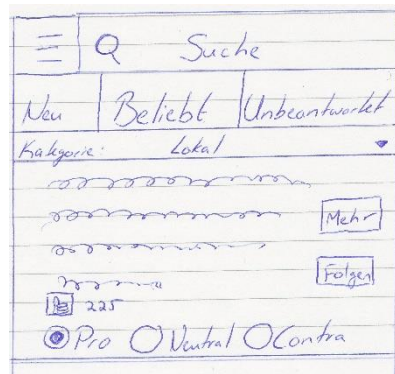 Suche
Neu Beliebt Unbeantwortet
Kategorie: Lokal
Mehr
Folgen
225
Pro Neutral Contra